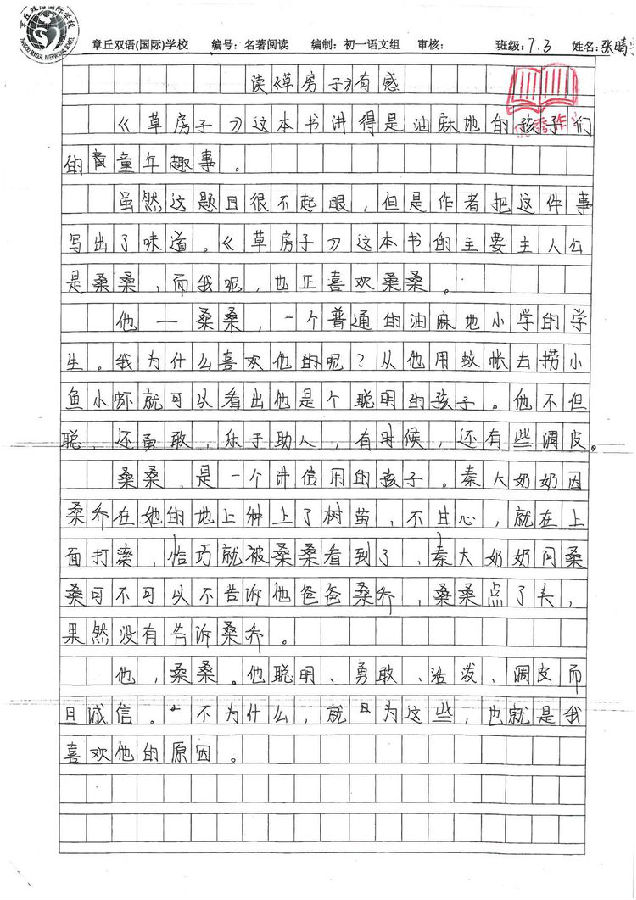 章丘双语(国际)学校 编号：名著阅读 编制：初一语文组 审核： 班级：7.3 姓名：张晴
读《草房子》有感
《草房子》这本书讲得是油麻地的孩子们
的童年趣事。
虽然这题目很不起眼，但是作者把这件事
写出了味道。《草房子》这本书的主要主人公
是桑桑，而我呢，也正喜欢桑桑。
他—桑桑，一个普通的油麻地小学的学
生。我为什么喜欢他的呢？从他用蚊帐去捞小
鱼小虾就可以看出他是个聪明的孩子。他不但
聪，还勇敢，乐于助人，有时候，还有些调皮。
桑桑，是一个讲信用的孩子。秦大奶奶因
桑乔在她的地上种上了树苗，不甘心，就在上
面打滚，恰巧就被桑桑看到了，秦大奶奶问桑
桑可不可以不告诉他爸爸桑乔，桑桑点了头，
果然没有告诉桑乔。
他，桑桑。他聪明、勇敢、活泼、调皮而
且诚信。不为什么，就因为这些，也就是我
喜欢他的原因。